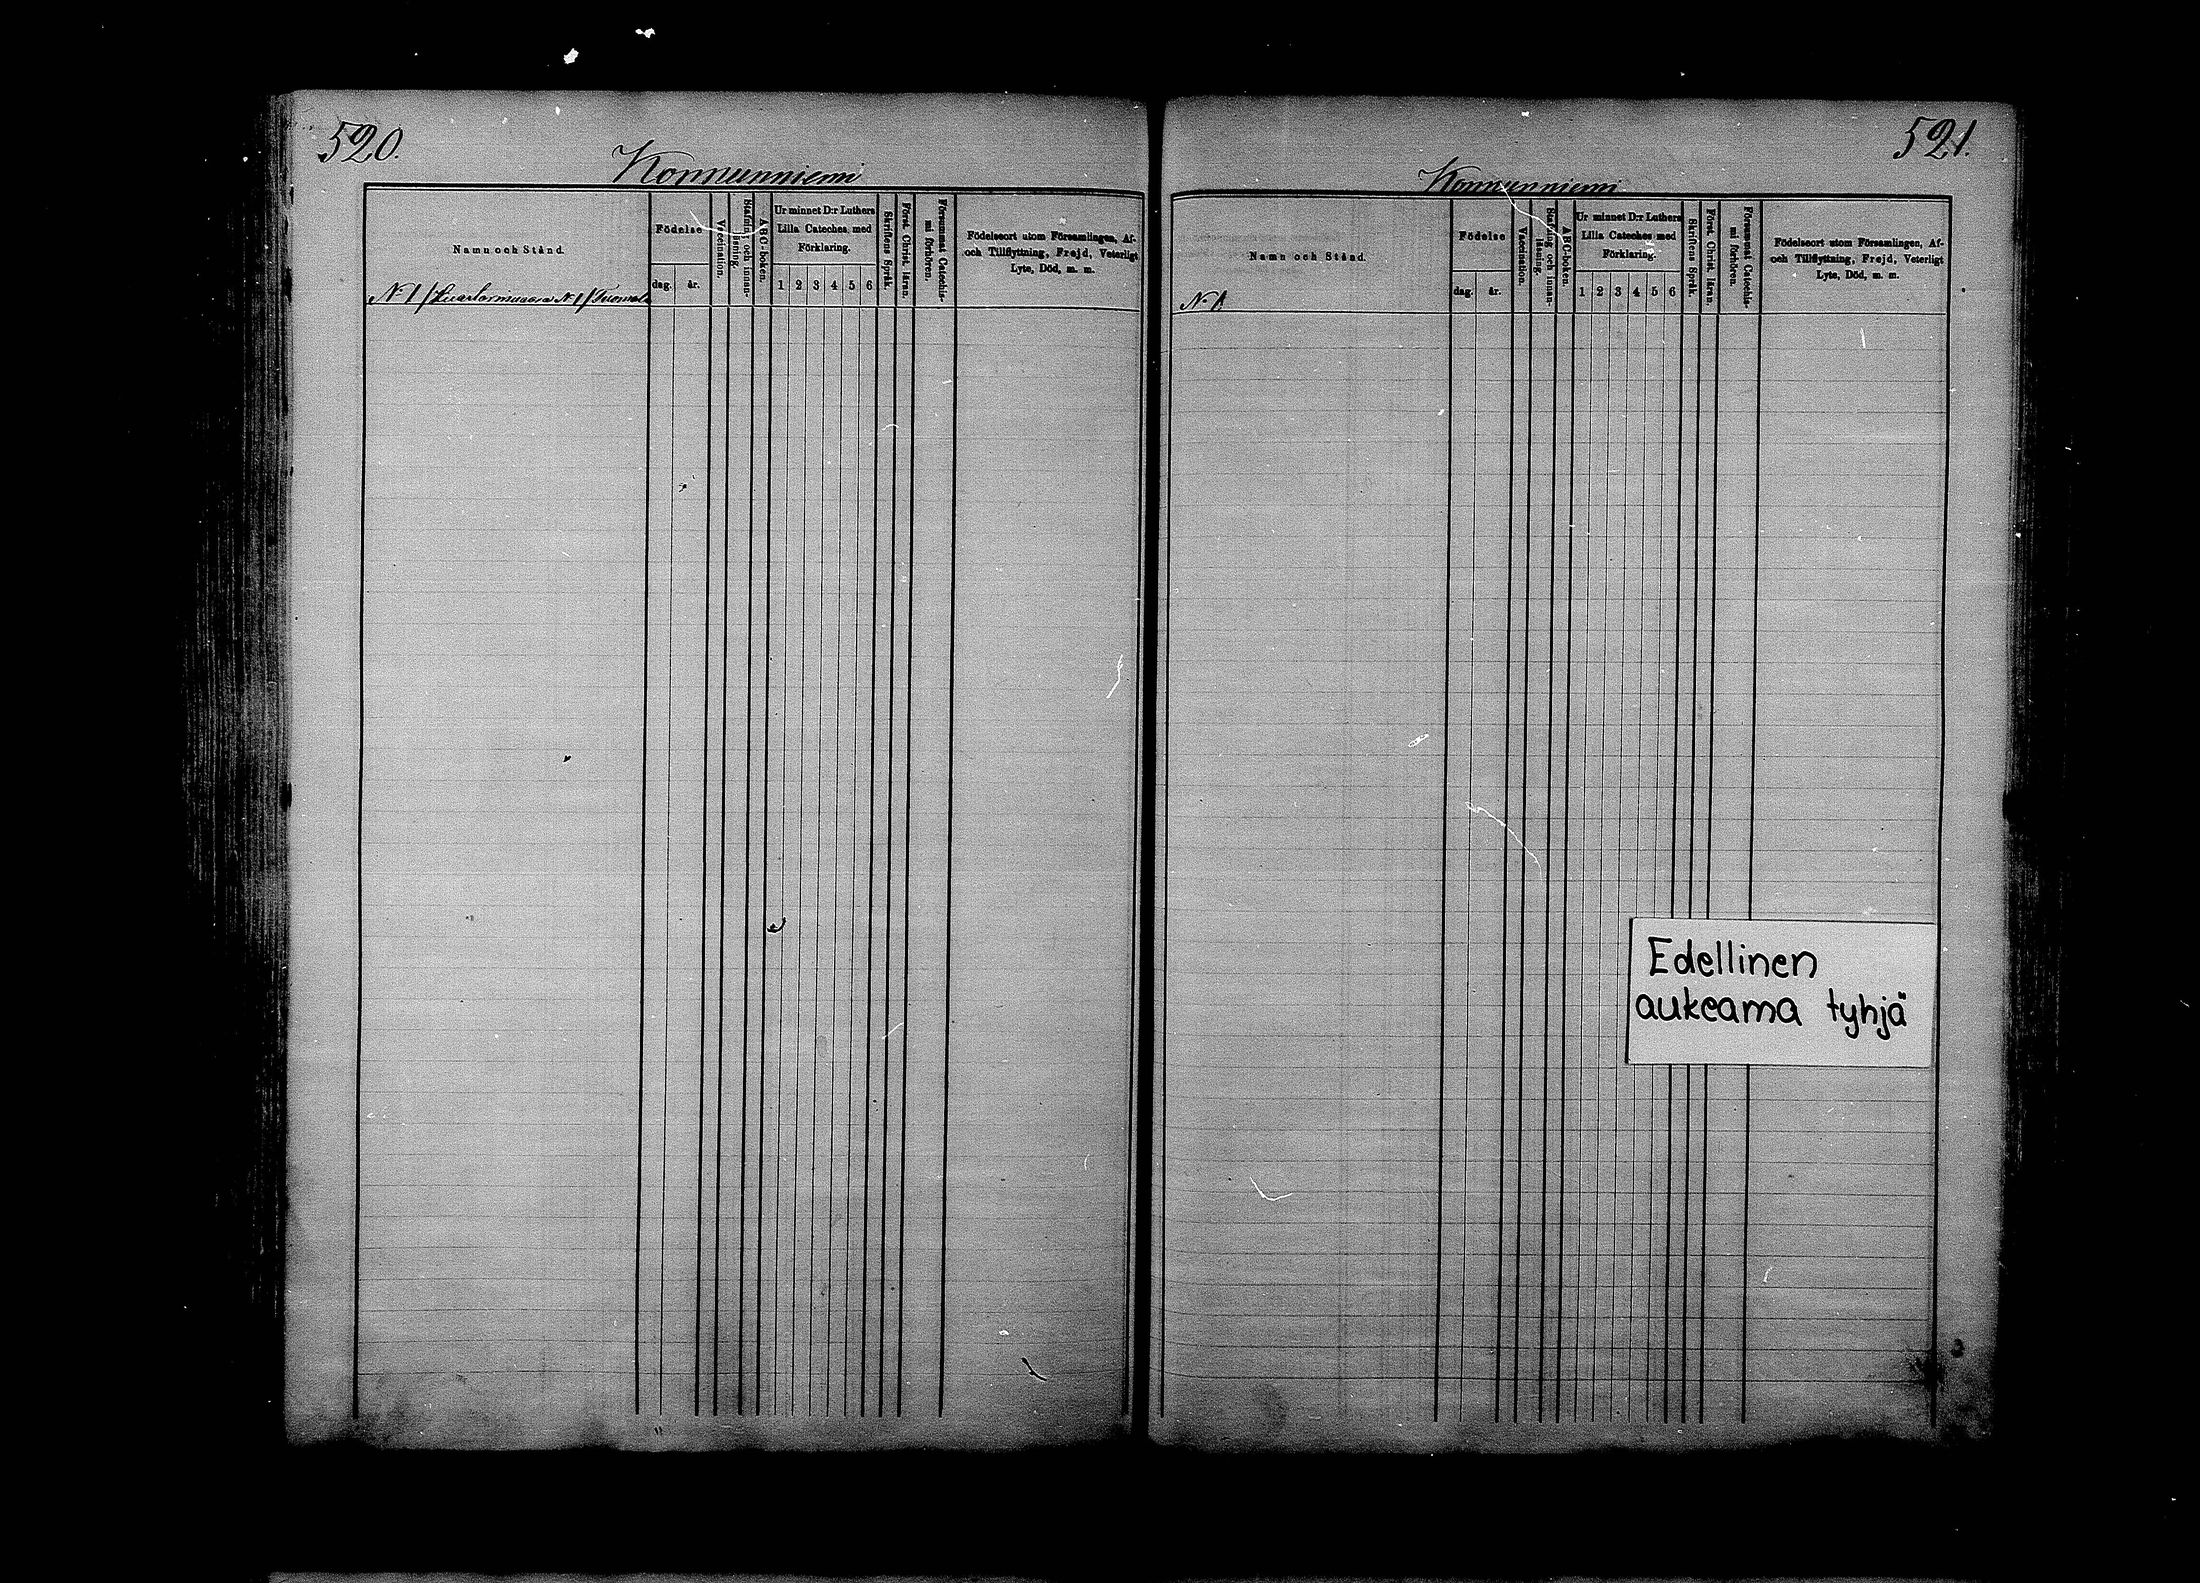 520.
Konnunniemi
Namn och Stånd.
Födelse
dag. år.
Vaccination.
Stafning och innan-
läsning.
ABC-boken.
Ur minnet D:r Luthers
Lilla Cateches med
Förklaring.
1 2 3 4 5 6
Skriftens Språk.
Först. Christ. läran.
Försummat Catechis-
mi förhören.
Födelseort utom Församlingen, Af-
och Tillflyttning, Frejd, Veterligt
Lyte, Död, m. m.
N. 1 / N. 1 / Tuomela
521.
Konnunniemi
Namn och Stånd.
Födelse
dag. år.
Vaccination.
Stafning och innan-
läsning.
ABC-boken.
Ur minnet D:r Luthers
Lilla Cateches med
Förklaring.
1 2 3 4 5 6
Skriftens Språk.
Först. Christ. läran.
Försummat Catechis-
mi förhören.
Födelseort utom Församlingen, Af-
och Tillflyttning, Frejd, Veterligt
Lyte, Död, m. m.
N. 1.
Edellinen
aukeama tyhjä